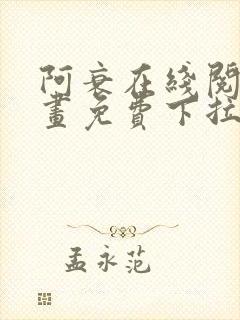 阿衰在线阅
画免费下拉
孟永范